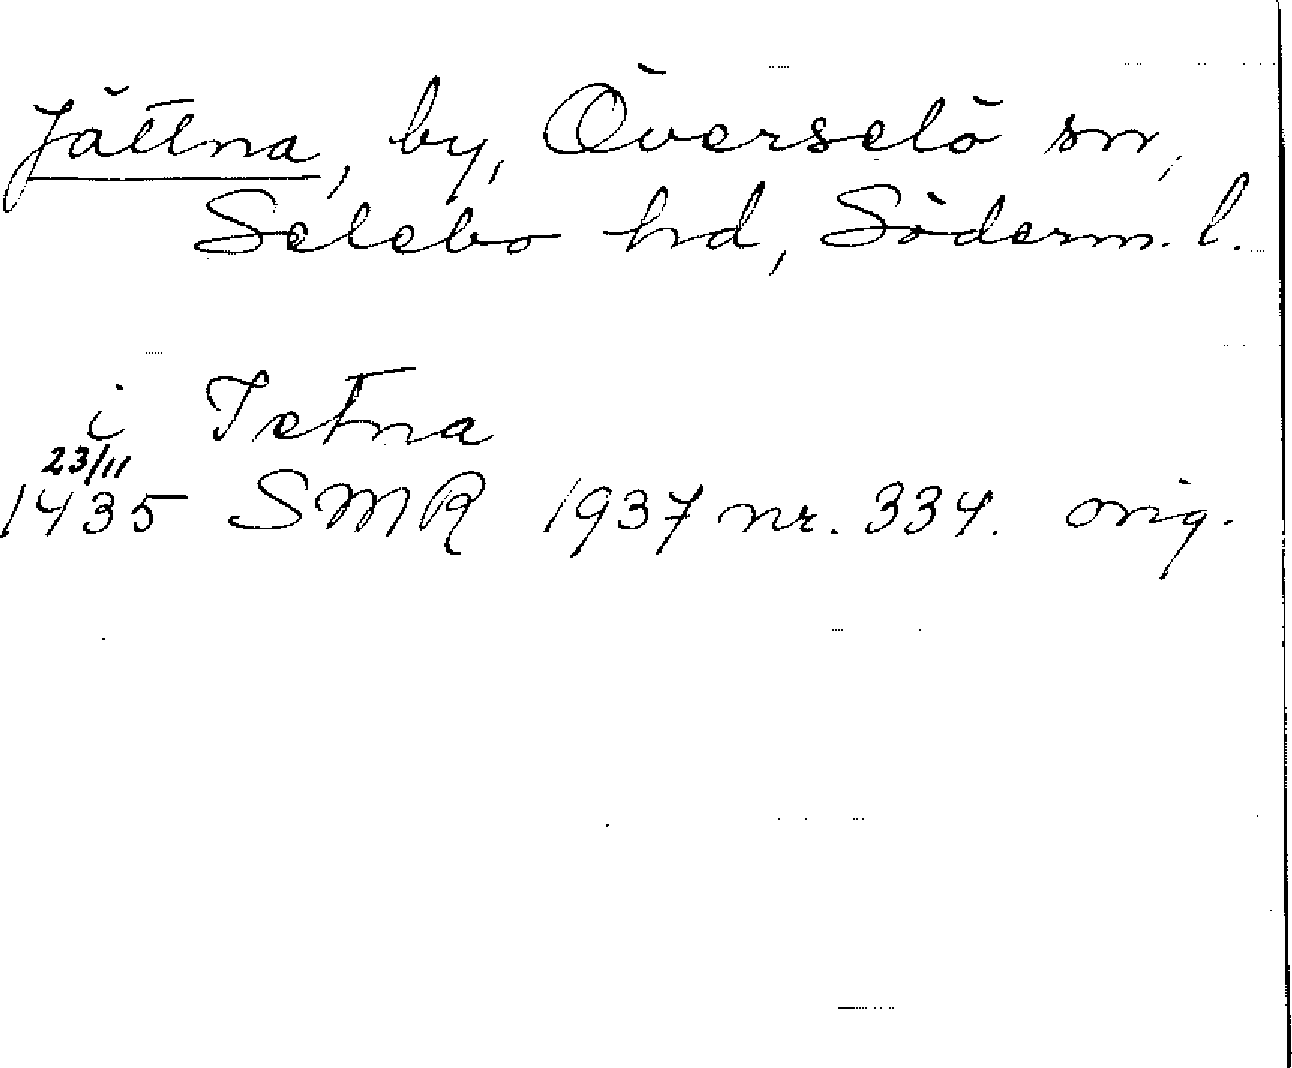 Jättna, by, Överselö sn,
Selebo hd, Söderm. l.
i Ietna
23/11
1435 SMR 1937 nr. 334. orig.